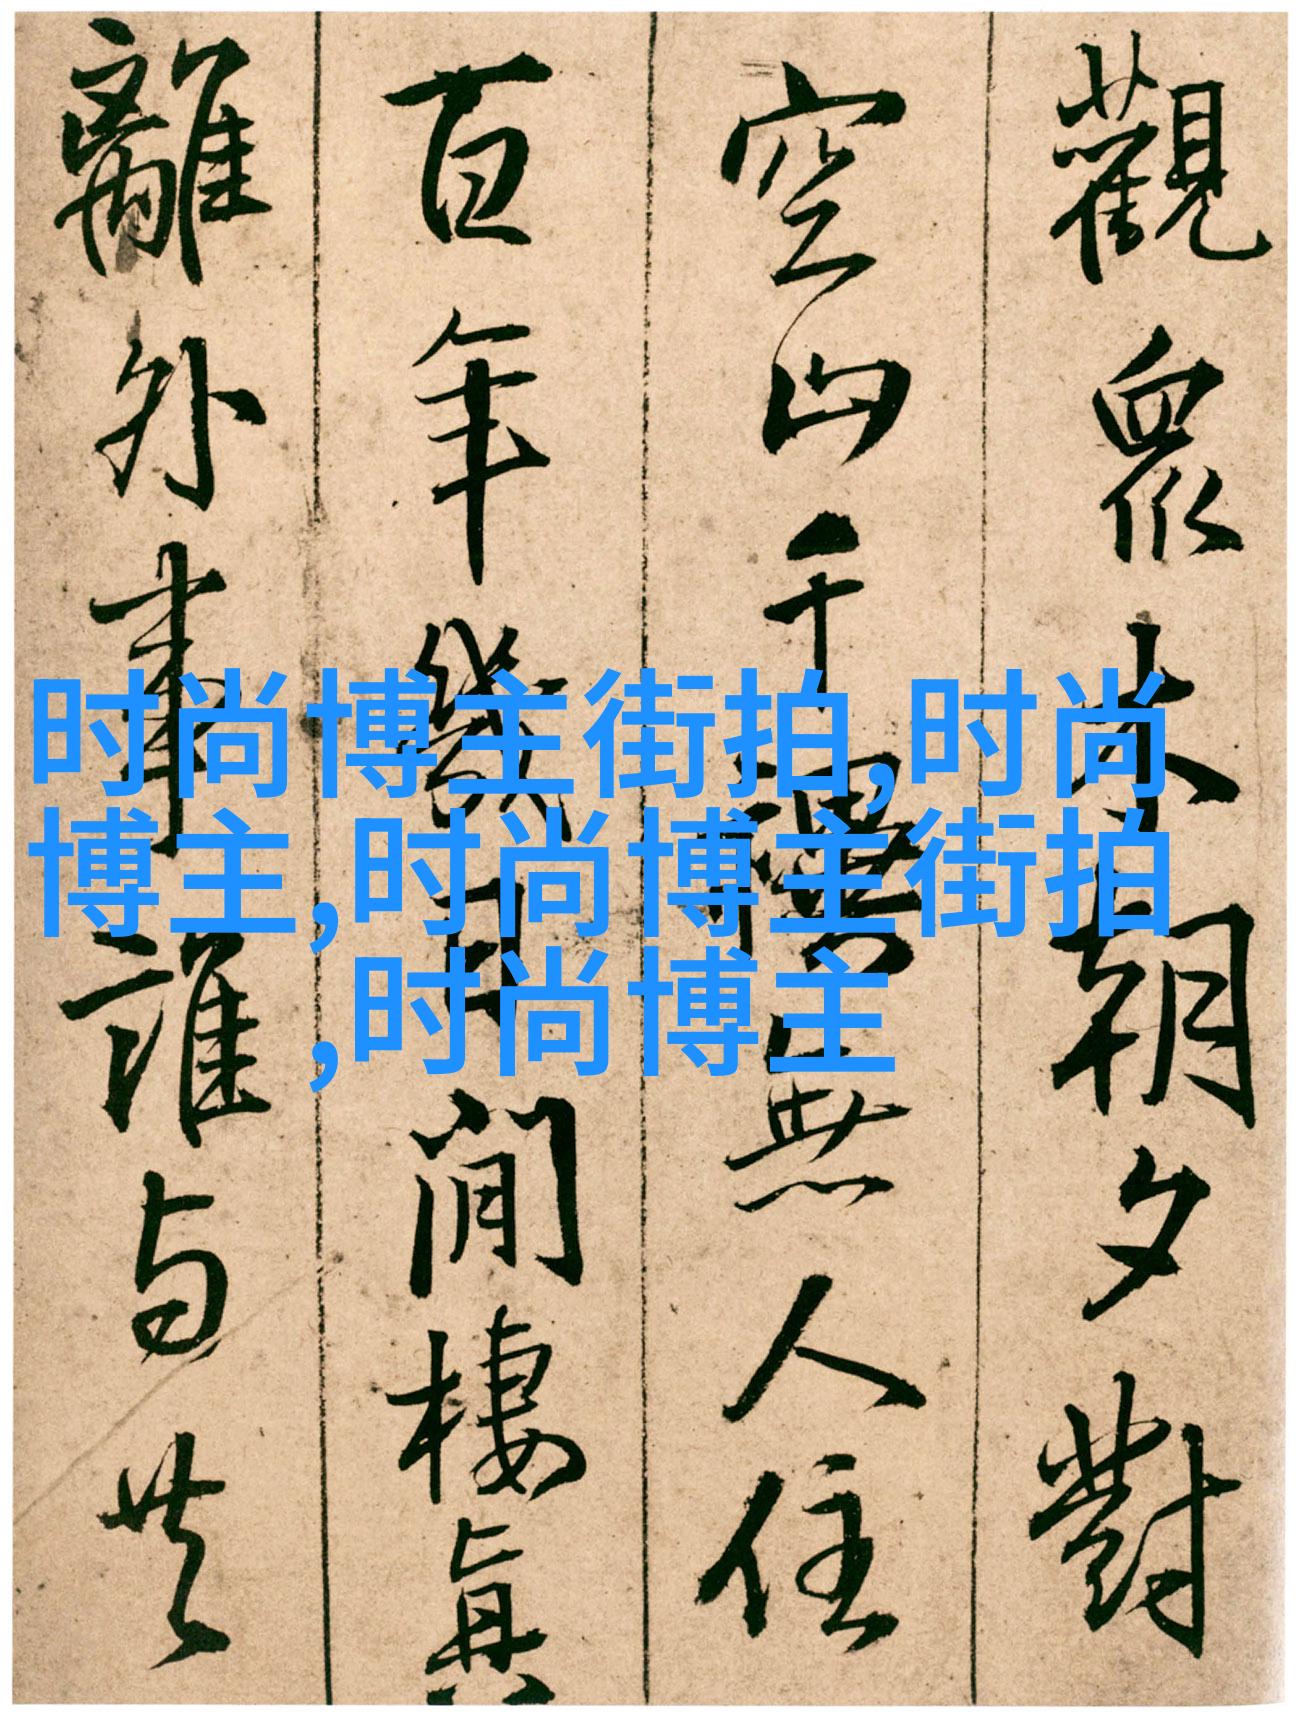 觀眾木朝夕對
空山千禩無人住
百年幾日閒棲真
離外事誰与共
时尚博主街拍,时尚
博主,时尚博主街拍
,时尚博主